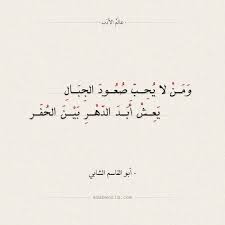 عالم الأدب
وَمَنْ لا يُحِبّ صُعُودَ الجِبَالِ
يَعِشْ أَبَدَ الدَّهْرِ بَيْنَ الحُفَر
- أبو القاسم الشابي